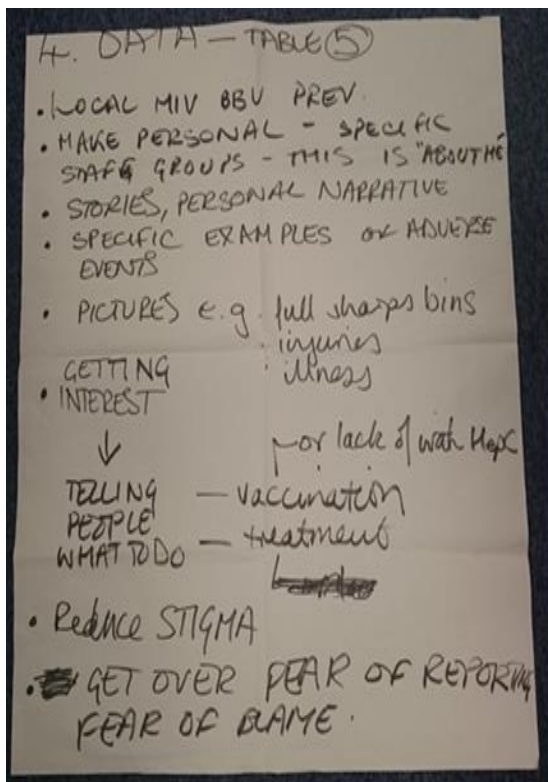 4. DATA — TABLE 5
• LOCAL HIV BBV PREV.
• MAKE PERSONAL – SPECIFIC
STAFF GROUPS – THIS IS "ABOUT ME
• STORIES, PERSONAL NARRATIVE
• SPECIFIC EXAMPLES OF ADVERSE
EVENTS
• PICTURES e.g. full sharps bins
· injuries
· illness
• GETTING
INTEREST
↓
or lack of with HepC
TELLING — vaccination
PEOPLE
WHAT TO DO — treatment
• Reduce STIGMA
• GET OVER FEAR OF REPORTING
FEAR OF BLAME.